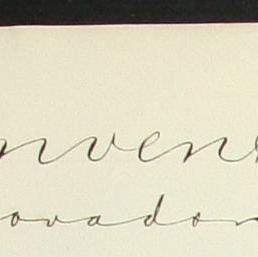 nven
ovado